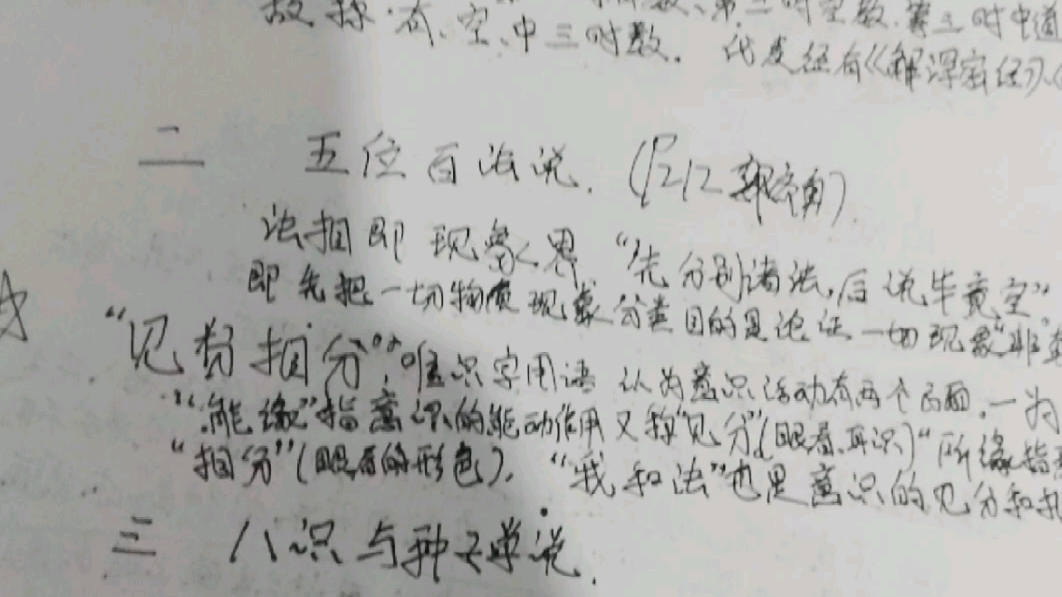 故称有、空、中三时教. 代表经有《解深密经》、
二 五位百法说. (P212
法相即现象界 “先分别诸法,后说毕竟空”
即先把一切物质现象分类目的是论证一切现象“非
“见分相分”:唯识宗用语 认为意识活动有两个方面,一为
“能缘”指意识的能动作用又称“见分”(眼看.耳识)“所缘指
“相分”(眼看的形色). “我和法”也是意识的见分和
三 八识与种子学说.